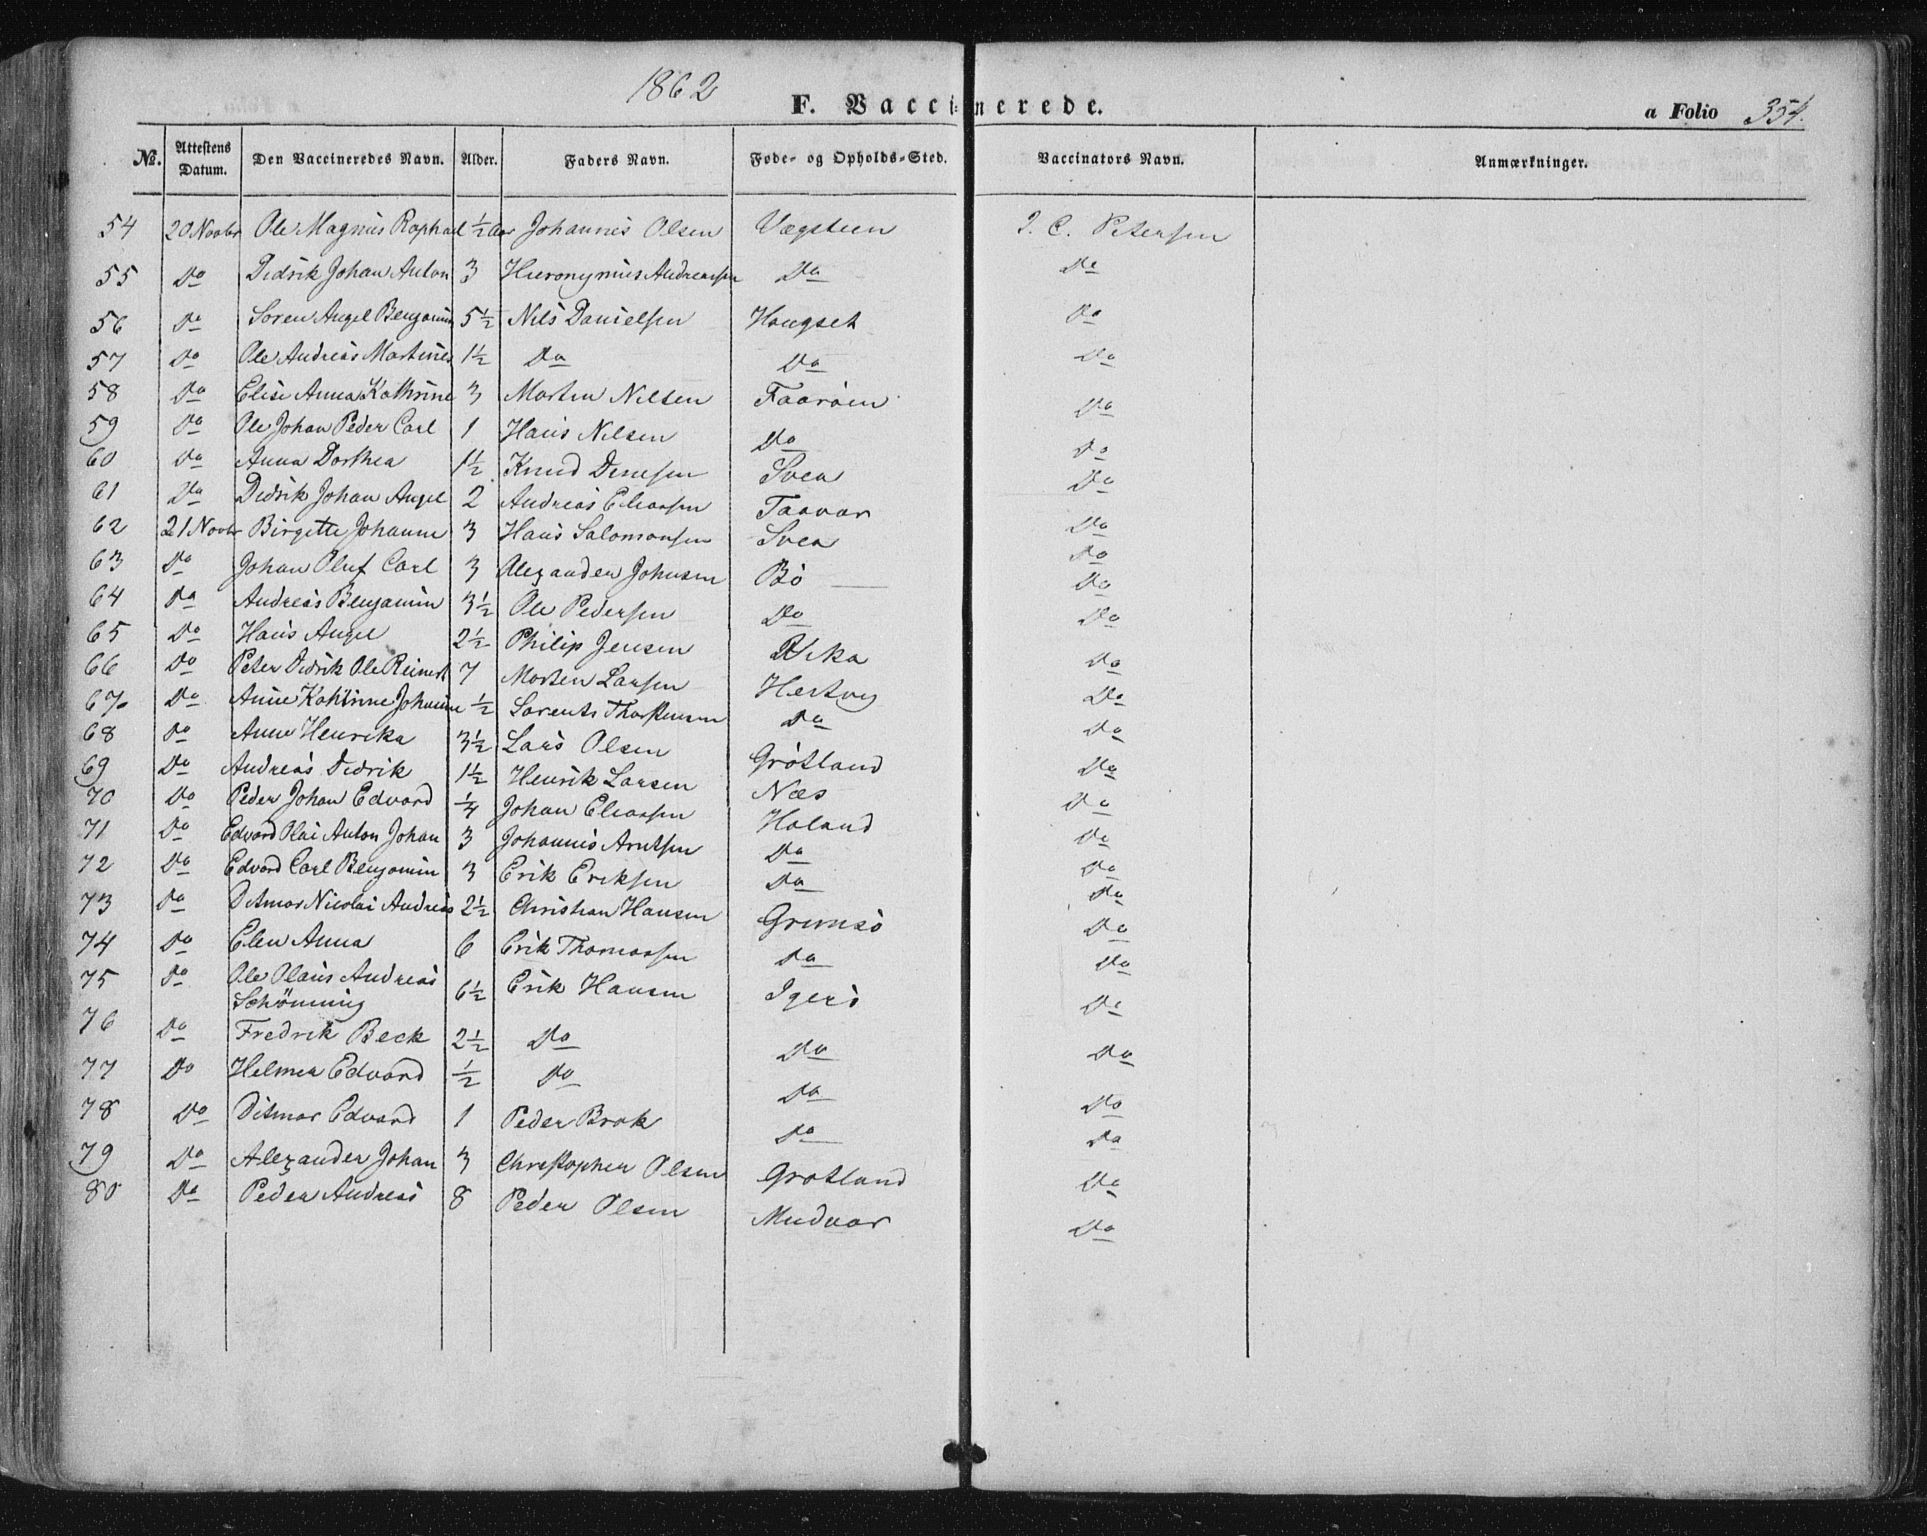 1862
F. Vaccinerede. a Folio 354.
No. Attestens Datum. Den Vaccineredes Navn. Alder. Faders Navn. Føde- og Opholds-Sted. Vaccinators Navn. Anmærkninger.
54 20 Novbr Ole Magnus Raphael 1/2 Aar Johannes Olsen Vægsteen J. C. Petersen
55 Do Didrik Johan Anton 3 Hieronymus Andreassen Do Do
56 Do Søren Angel Benjamin 5 1/2 Nils Danielsen Haugset Do
57 Do Ole Andreas Martines 1 1/2 Do Do Do
58 Do Elise Anna Kathrine 3 Morten Nilsen Faarøen Do
59 Do Ole Johan Peder Carl 1 Hans Nilsen Do Do
60 Do Anna Dorthea 1 1/2 Knud Densen Svea Do
61 Do Didrik Johan Angel 2 Andreas Eliassen Taavær Do
62 21 Novbr Birgitte Johanne 3 Hans Salomonsen Svea Do
63 Do Johan Oluf Carl 3 Alexander Johnsen Bø Do
64 Do Andreas Benjamin 3 1/2 Ole Pedersen Do Do
65 Do Hans Angel 2 1/2 Philip Jensen Do
66 Do Peter Didrik Ole Reinert 7 Morten Larsen Hestvig Do
67 Do Anne Kathrine Johanne 1/2 Lorents Thorstensen Do Do
68 Do Anne Henrika 3 1/2 Lars Olsen Grøtland Do
69 Do Andreas Didrik 1 1/2 Henrik Larsen Næs Do
70 Do Peder Johan Edvard 1/4 Johan Eliassen Haland Do
71 Do Edvard Olai Anton Johan 3 Johannes Arntsen Do Do
72 Do Edvard Carl Benjamin 3 Erik Eriksen Do Do
73 Do Ditmar Nicolai Andreas 2 1/2 Christian Hansen Grimsø Do
74 Do Elen Anna 6 Erik Thomassen Do Do
75 Do Ole Olaus Andreas
Schønning 6 1/2 Erik Hansen Igerø Do
76 Do Fredrik Beck 2 1/2 Do Do Do
77 Do Helmer Edvard 1/2 Do Do Do
78 Do Ditmar Edvard 1 Peder Brok Do Do
79 Do Alexander Johan 3 Christopher Olsen Grøtland Do
80 Do Peder Andreas 8 Peder Olsen Mudvær Do